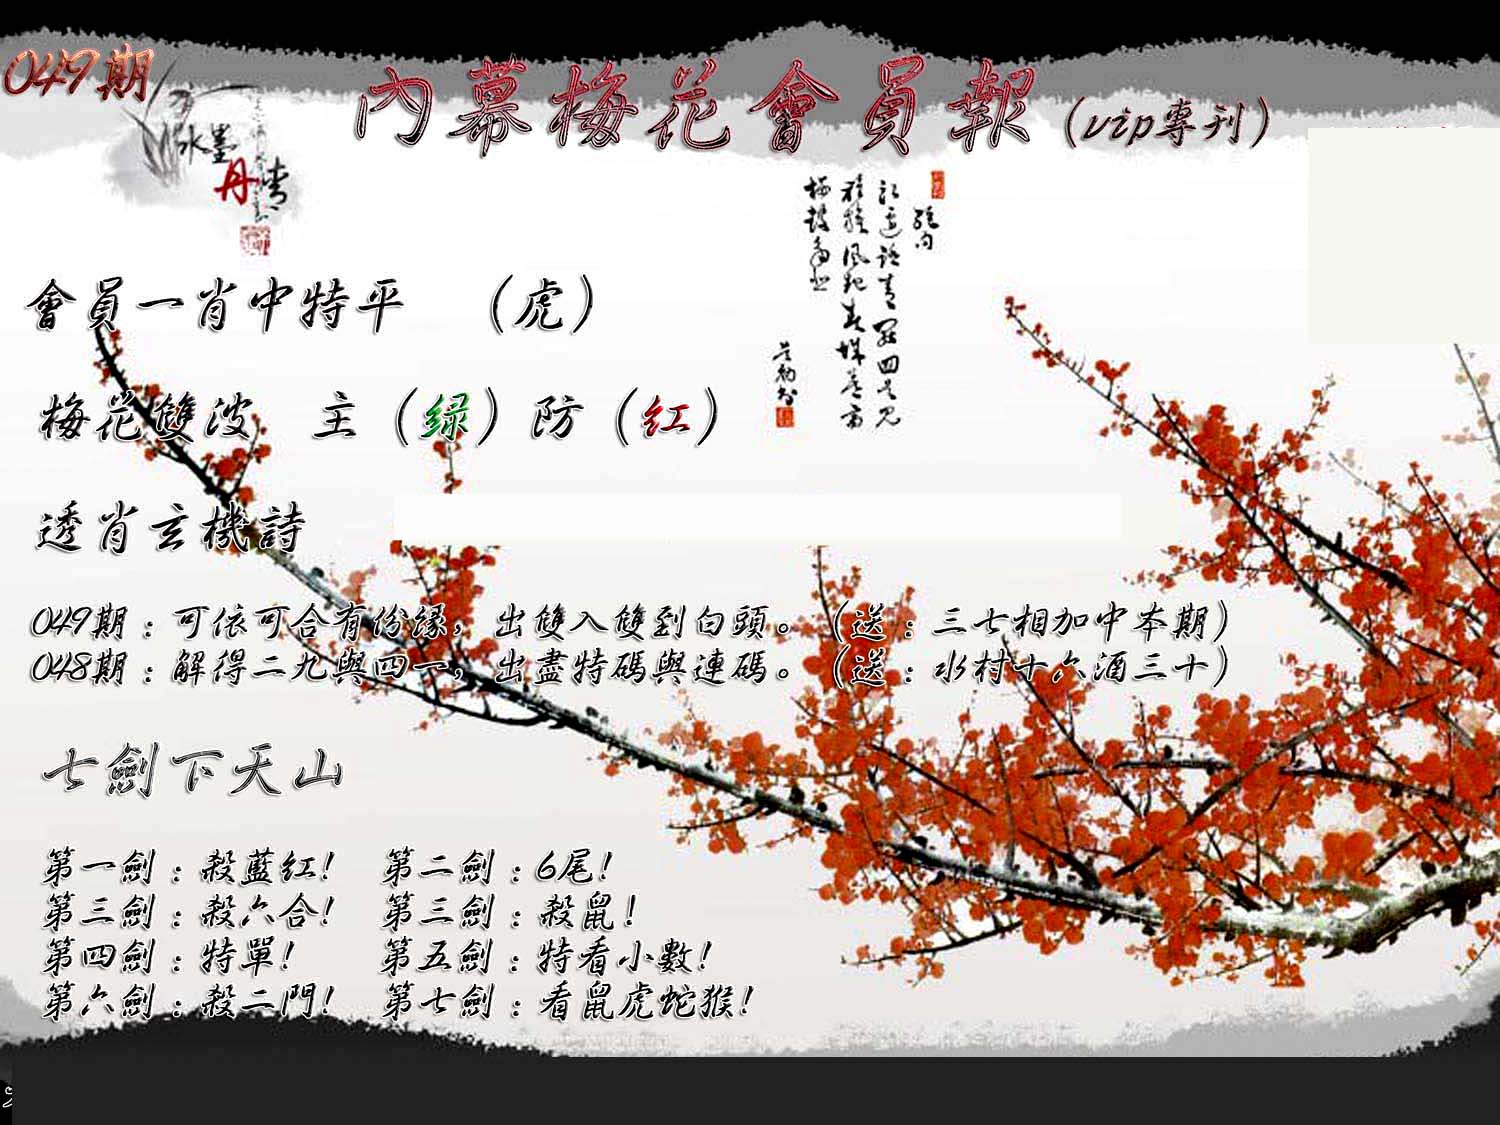 049期
內幕梅花會員報(vip專刊)
水墨
丹青
會員一肖中特平 (虎)
梅花雙波 主(绿)防(红)
透肖玄機詩
049期:可依可合有份缘,出雙入雙到白頭。(送:三七相加中本期)
048期:解得二九與四一,出盡特碼與連碼。(送:水村十六酒三十)
七劍下天山
第一劍:殺藍紅! 第二劍:6尾!
第三劍:殺六合! 第三劍:殺鼠!
第四劍:特單! 第五劍:特看小數!
第六劍:殺二門! 第七劍:看鼠虎蛇猴!